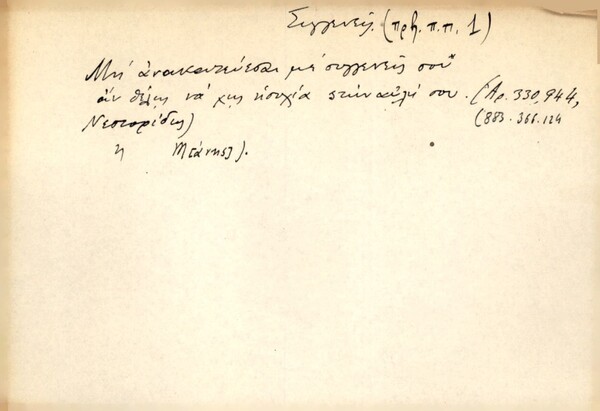 Συγγενείς. (πρβ. π.π. 1)
Μή ἀνακατεύεσαι μέ συγγενεῖς σου
ἄν θέλῃς νά 'χῃς ἡσυχία στήν αὐλή σου. (Ἀρ. 330, 944,
Νεστορίδης) (883. 366. 124
ἤ